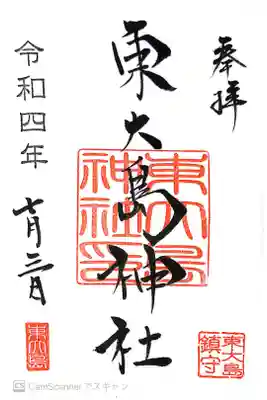 奉拝
東大島神社
東大島
神社印
令和四年
七月三日
東大島
鎮守
東大島
CamScanner でスキャン